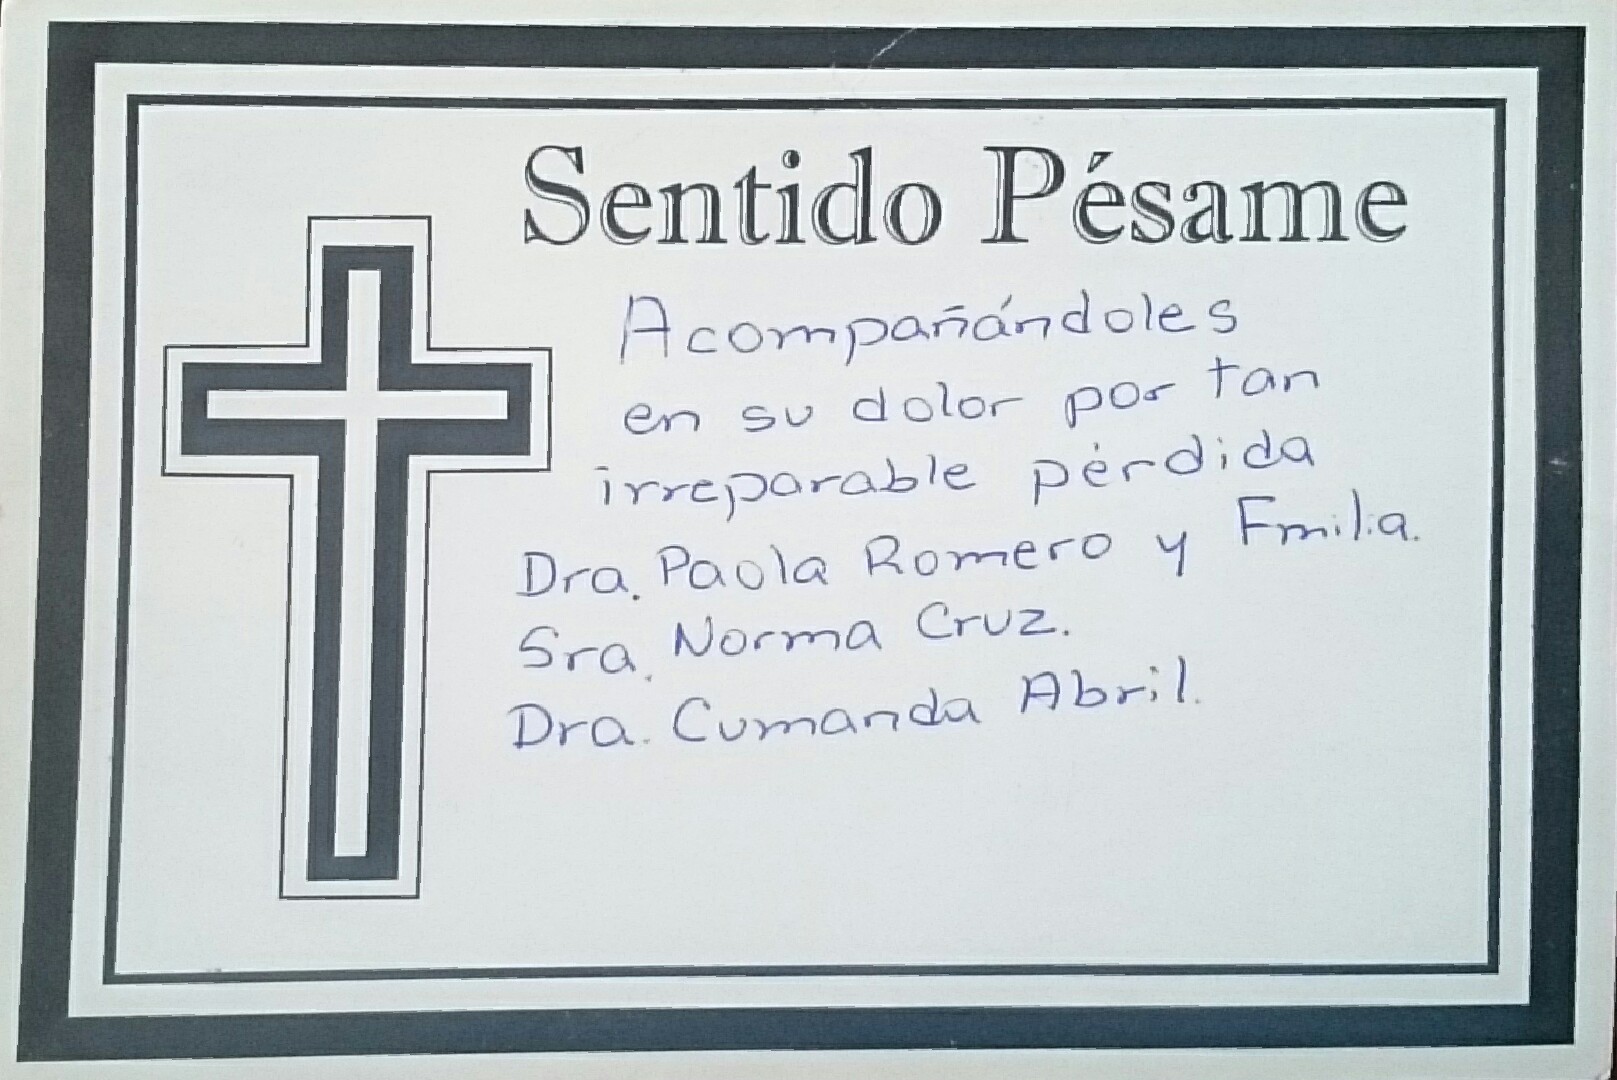 Sentido Pésame
Acompañándoles
en su dolor por tan
irreparable pérdida
Dra. Paola Romero y Fmilia.
Sra. Norma Cruz.
Dra. Cumanda Abril.